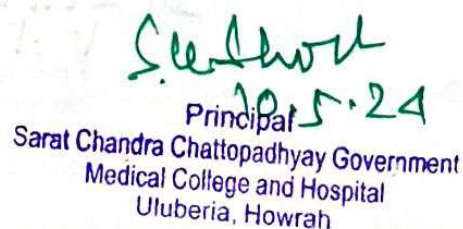 10.5.24
Principal
Sarat Chandra Chattopadhyay Government
Medical College and Hospital
Uluberia, Howrah